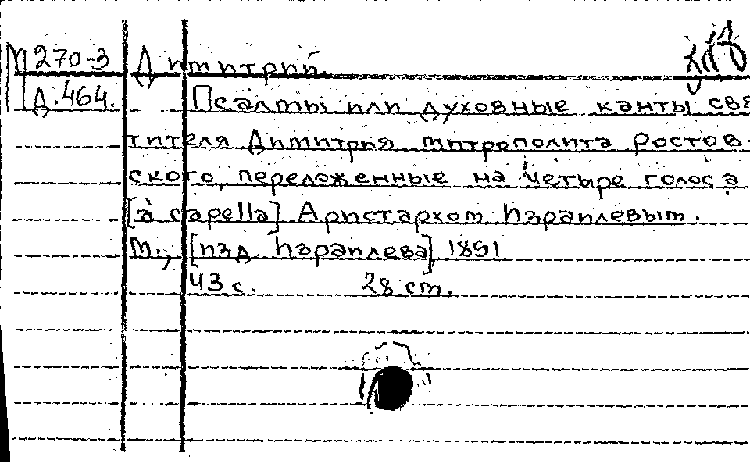 М 270-3 Димитрий.
Д.464. Псалмы или духовные канты свя
тителя Димитрия митрополита Ростов-
ского, переложенные на четыре голоса
[à capella] Аристархом Израилевым.
М., [изд. Израилева], 1891
43 с. 28 см.